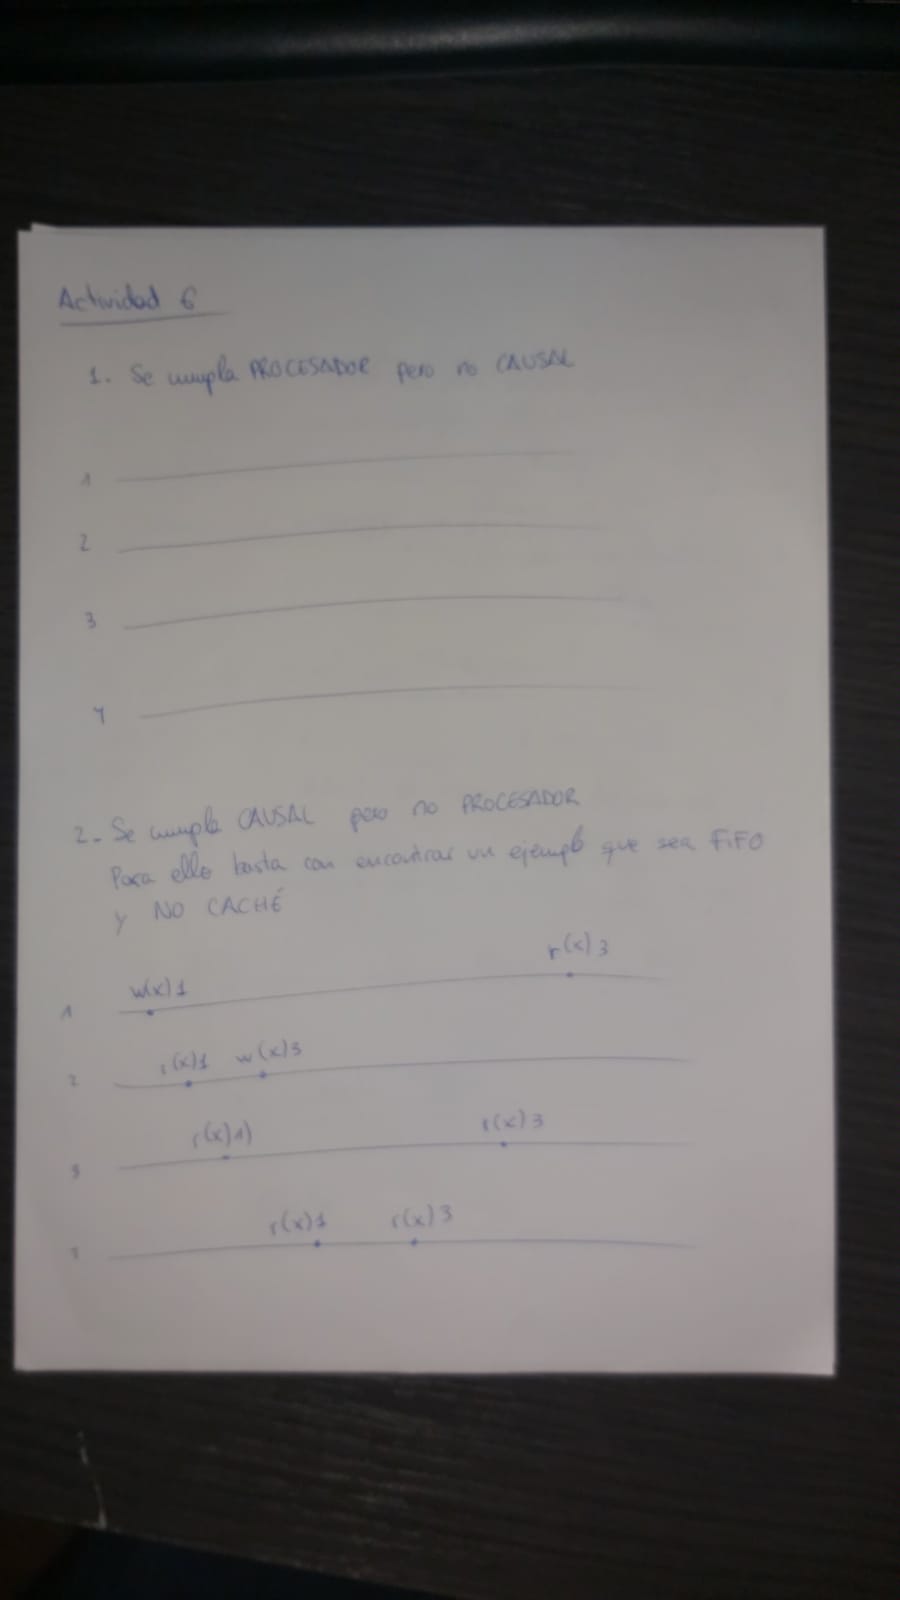 Actividad 6
1. Se cumpla PROCESADOR pero no CAUSAL
1
2
3
4
2- Se cumpla CAUSAL pero no PROCESADOR
Para ello basta con encontrar un ejemplo que sea FIFO
y NO CACHÉ
1 w(x)1 r(x)3
2 r(x)1 w(x)3
3 r(x)1) r(x)3
r(x)1 r(x)3